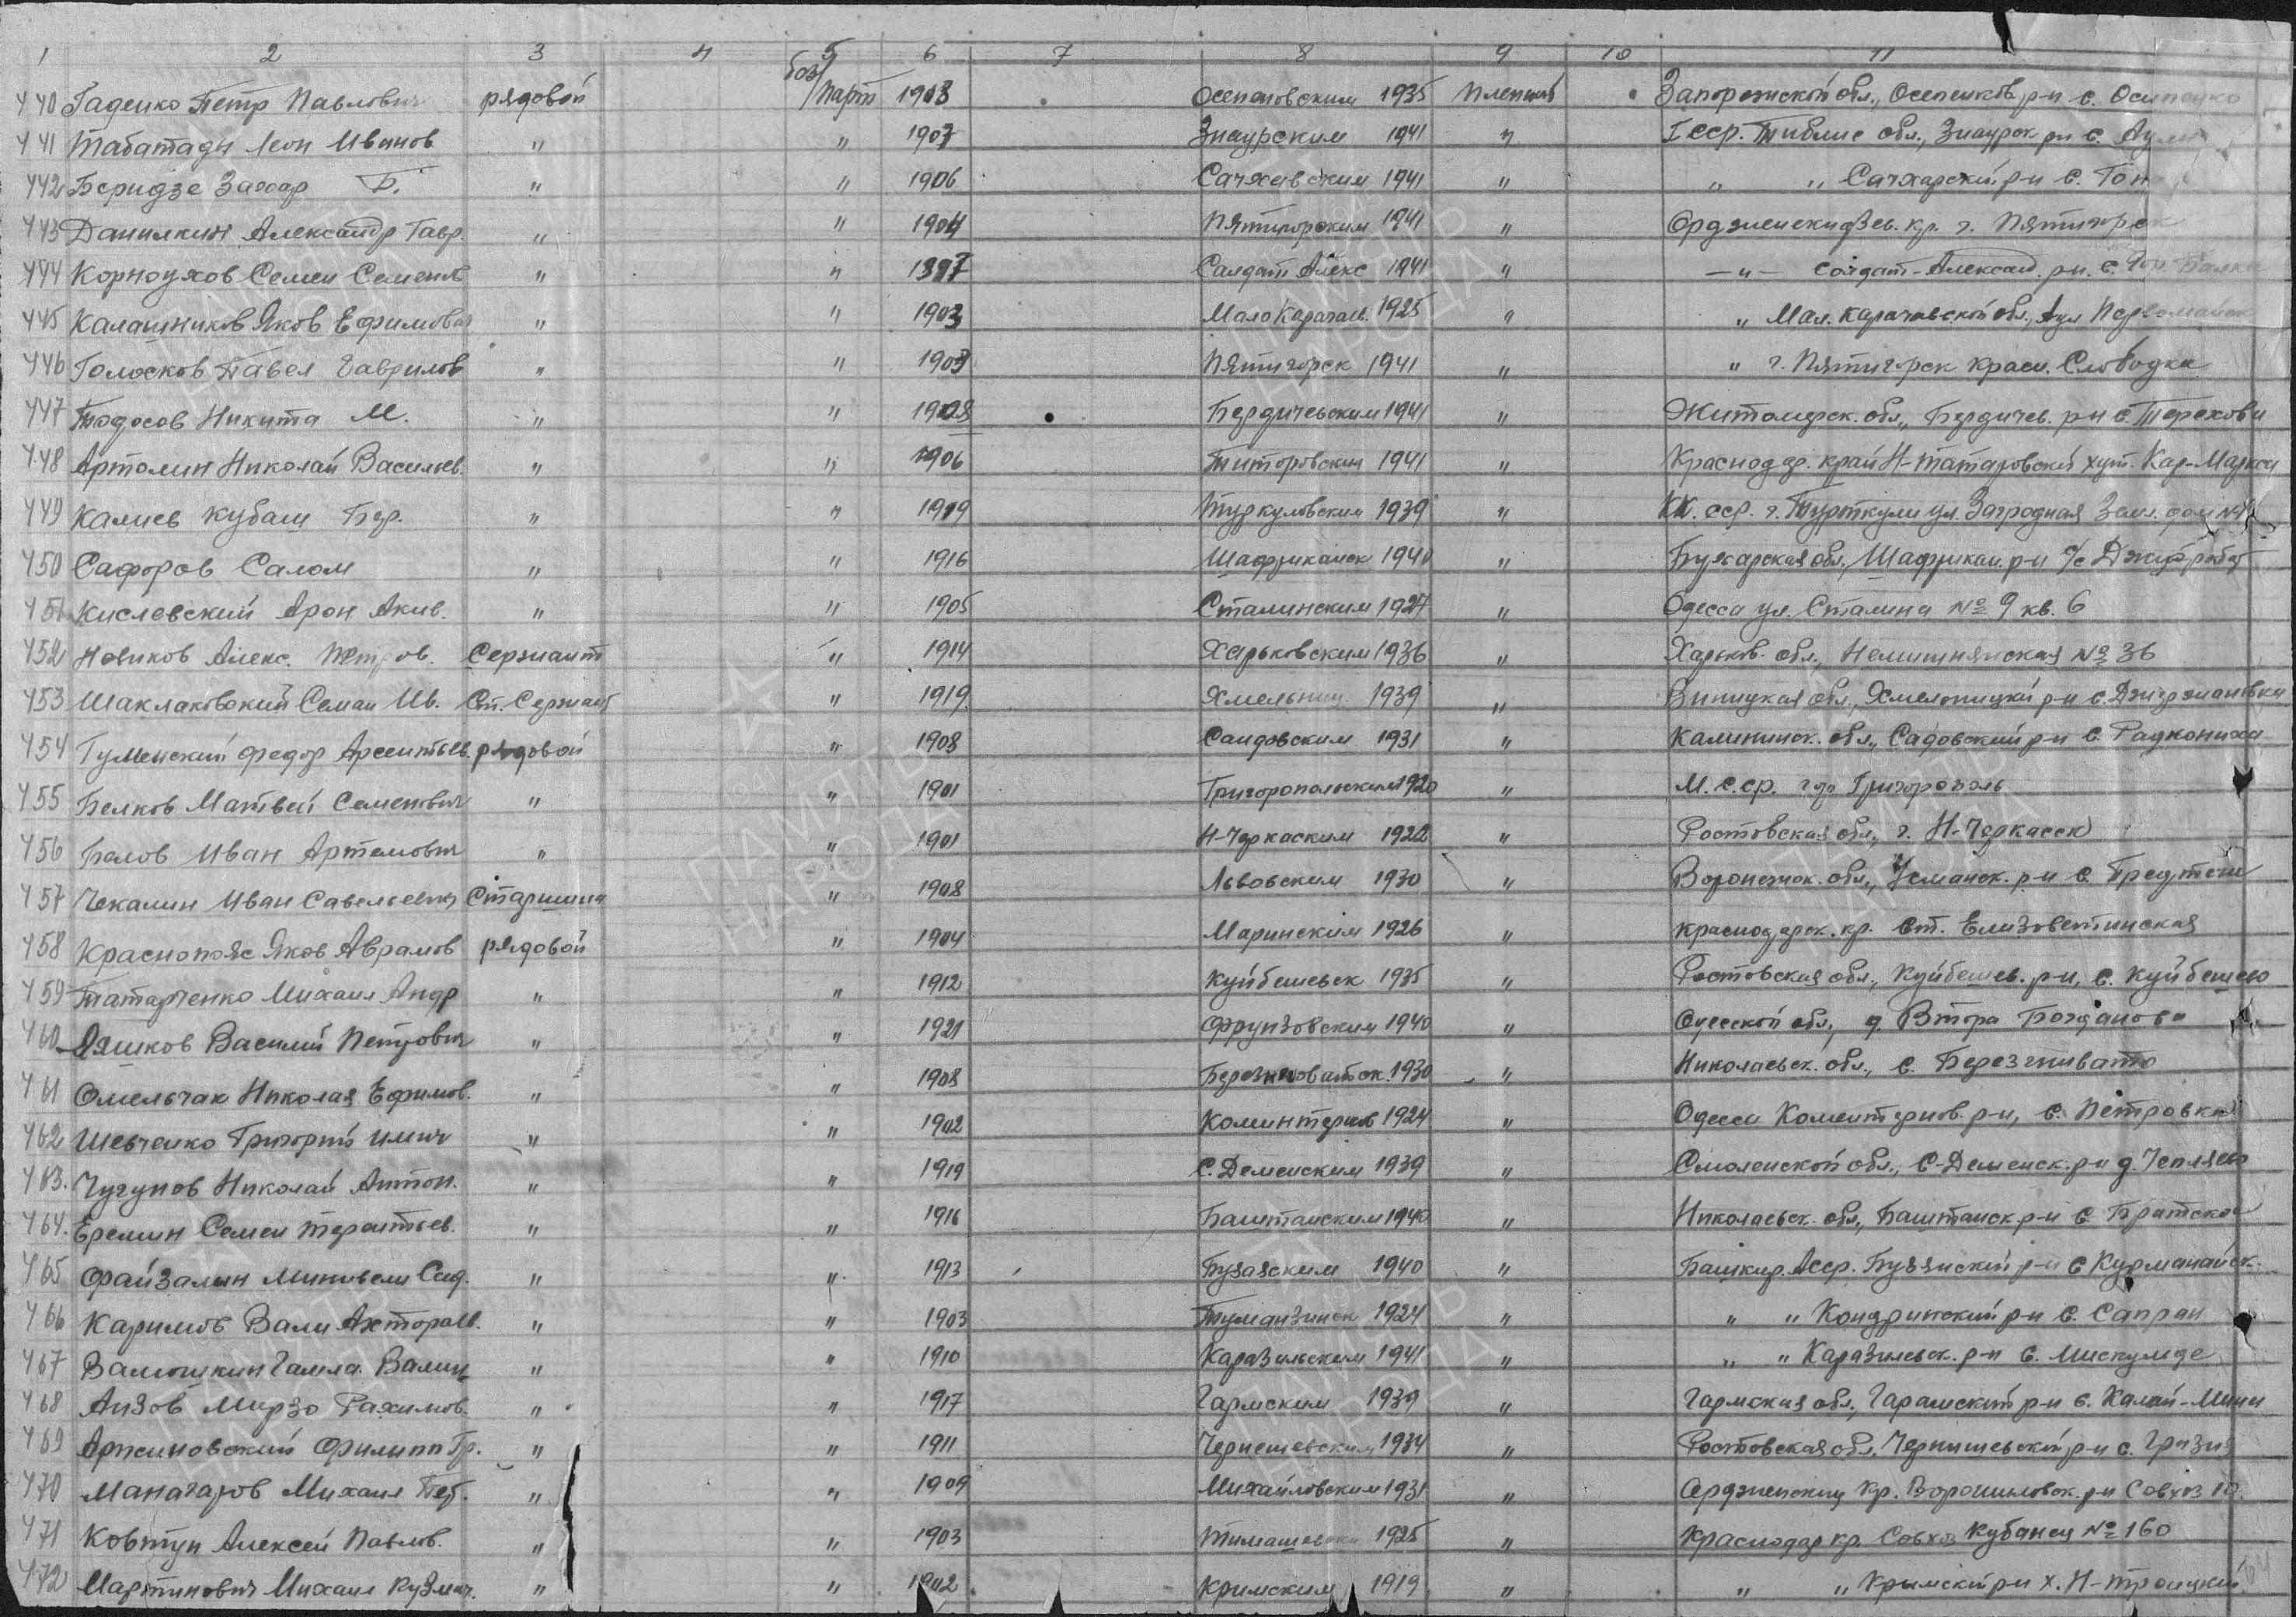 1 2 3 4 5 6 7 8 9 10 11
440 Гаденко Петр Павлович рядовой без/парт 1903 Осепеновским 1935 Пленный Запорожской обл., Осепенков. р-н с. Осипенко
441 Табатадзе Леон Иванов " " 1907 Знаурским 1941 " ГССР. Тиблис обл., Знаурск рн с.
442 Беридзе Захар Б. " " 1906 Сачхевским 1941 " " " Сачхарский р-н с. Гон
443 Данилкин Александр Гавр. " " 1904 Пятигорским 1941 " Орджоникидзев. кр. г. Пятигорск
444 Корноухов Семен Семенов " " 1897 Салдат Алекс 1941 " —"— Солдат-Александ. р-н. с.
445 Калашников Яков Ефимович " " 1903 Мало Карачаев. 1925 " " Мал. Карачаевской обл., Аул Первомайск
446 Голосков Павел Гаврилов " " 1903 Пятигорск 1941 " " г. Пятигорск Красн. Слободка
447 Тодосов Никита М. " " 1908 Бердичевским 1941 " Житомирск. обл., Бердичев. р-н с. Терехови
448 Артомин Николай Васильев. " " 1906 Титоровским 1941 " Краснодар. край Н-Татаровский хут. Кар-Маркса
449 Калиев Кубаш Бер. " " 1919 Турткуловским 1939 " КК. сср. г. Турткули ул. Загродная Земл. дом №
450 Сафоров Салом " " 1916 Шафриканск 1940 " Бухарская обл., Шафрикан. р-н с/с
451 Кислевский Арон Акив. " " 1905 Сталинским 1927 " Одесса ул. Сталина № 9 кв. 6
452 Новиков Алекс. Петров. Сержант " 1914 Харьковским 1936 " Харьков. обл., Немишнянская № 36
453 Шаклаковский Семан Ив. Ст. Сержант " 1919 Хмельниц. 1939 " Виницкая обл., Хмелоницкий р-н с. Джержановка
454 Гуменский Федор Арсентьев. рядовой " 1908 Сандовским 1931 " Калининск. обл., Садовский р-н с. Радкониха
455 Белков Матвей Семенович " " 1901 Григоропольским 1920 " М.С.ср. гор Григорополь
456 Белов Иван Артемович " " 1901 Н-Черкаским 1922 " Ростовская обл., г. Н-Черкасск
457 Чекалин Иван Савельевич Старшина " 1908 Львовским 1930 " Воронежск. обл., Усманск. р-н с.
458 Краснопояс Яков Аврамов рядовой " 1904 Маринским 1926 " Краснодарск. кр. ст. Елизоветинская
459 Татарченко Михаил Андр " " 1912 Куйбешевск 1935 " Ростовская обл., Куйбешев. р-н, с. Куйбешево
460 Ляшков Василий Петрович " " 1921 Фрунзовским 1940 " Одесской обл., д. Втора Богданова
461 Омельчак Николая Ефимов. " " 1908 Березноватск. 1930 " Николаевск. обл., с. Березгниватo
462 Шевченко Григорий Илич " " 1902 Коминтернов 1924 " Одесса Коминтернов. р-н, с. Петровка
463. Чугунов Николай Антон. " " 1919 С. Деменским 1939 " Смоленской обл., С-Деменск. р-н д. Чепляево
464. Еремин Семен Терентьев. " " 1916 Баштанским 1940 " Николаевск. обл., Баштанск р-н с. Братское
465 Файзалин Минивели Сад. " " 1913 Бузавским 1940 " Башкир. Асср. Бузянский р-н с Курманайск.
466 Каримов Вали Ахторов. " " 1903 Туманзинск 1924 " " " Кондринский р-н с. Сапран
467 Валюшкин Гамла. Валин. " " 1910 Каразильским 1941 " " " Каразильск. р-н с. Мискумде
468 Анзов Мирзо Рахимов. " " 1917 Гармским 1939 " Гармская обл., Гарамский р-н с. Калай-Мини
469 Аржановский Филипп Гр. " " 1911 Чернешевским 1934 " Ростовская обл. Чернишевский р-н с. Грязна
470 Манагаров Михаил Пет. " " 1909 Михайловским 1931 " Орджоникид Кр. Ворошиловск. р-н Совхоз 10.
471 Ковтун Алексей Павлов. " " 1903 Тимашевски 1925 " Краснодар кр. Совхоз Кубанец № 160
472 Мартинович Михаил Кузмич. " " 1902 Кримским 1919 " " " Крымский р-н х. Н-Троицкий
ПАМЯТЬ НАРОДА